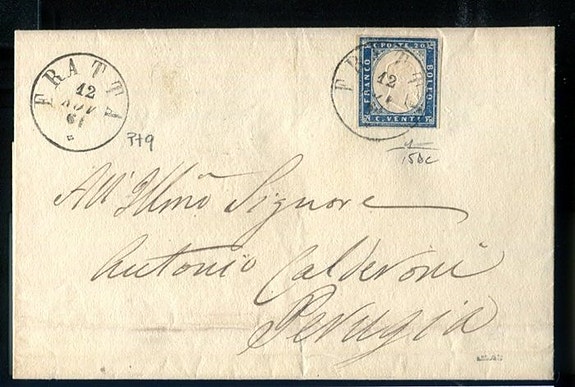 FRATTA
12
NOV
61
FRATTA
12
C. POSTE 20
FRANCO
BOLLO
C. VENTI
P79
15Dc
All' Illmo Signore
Antonio Calderoni
Perugia